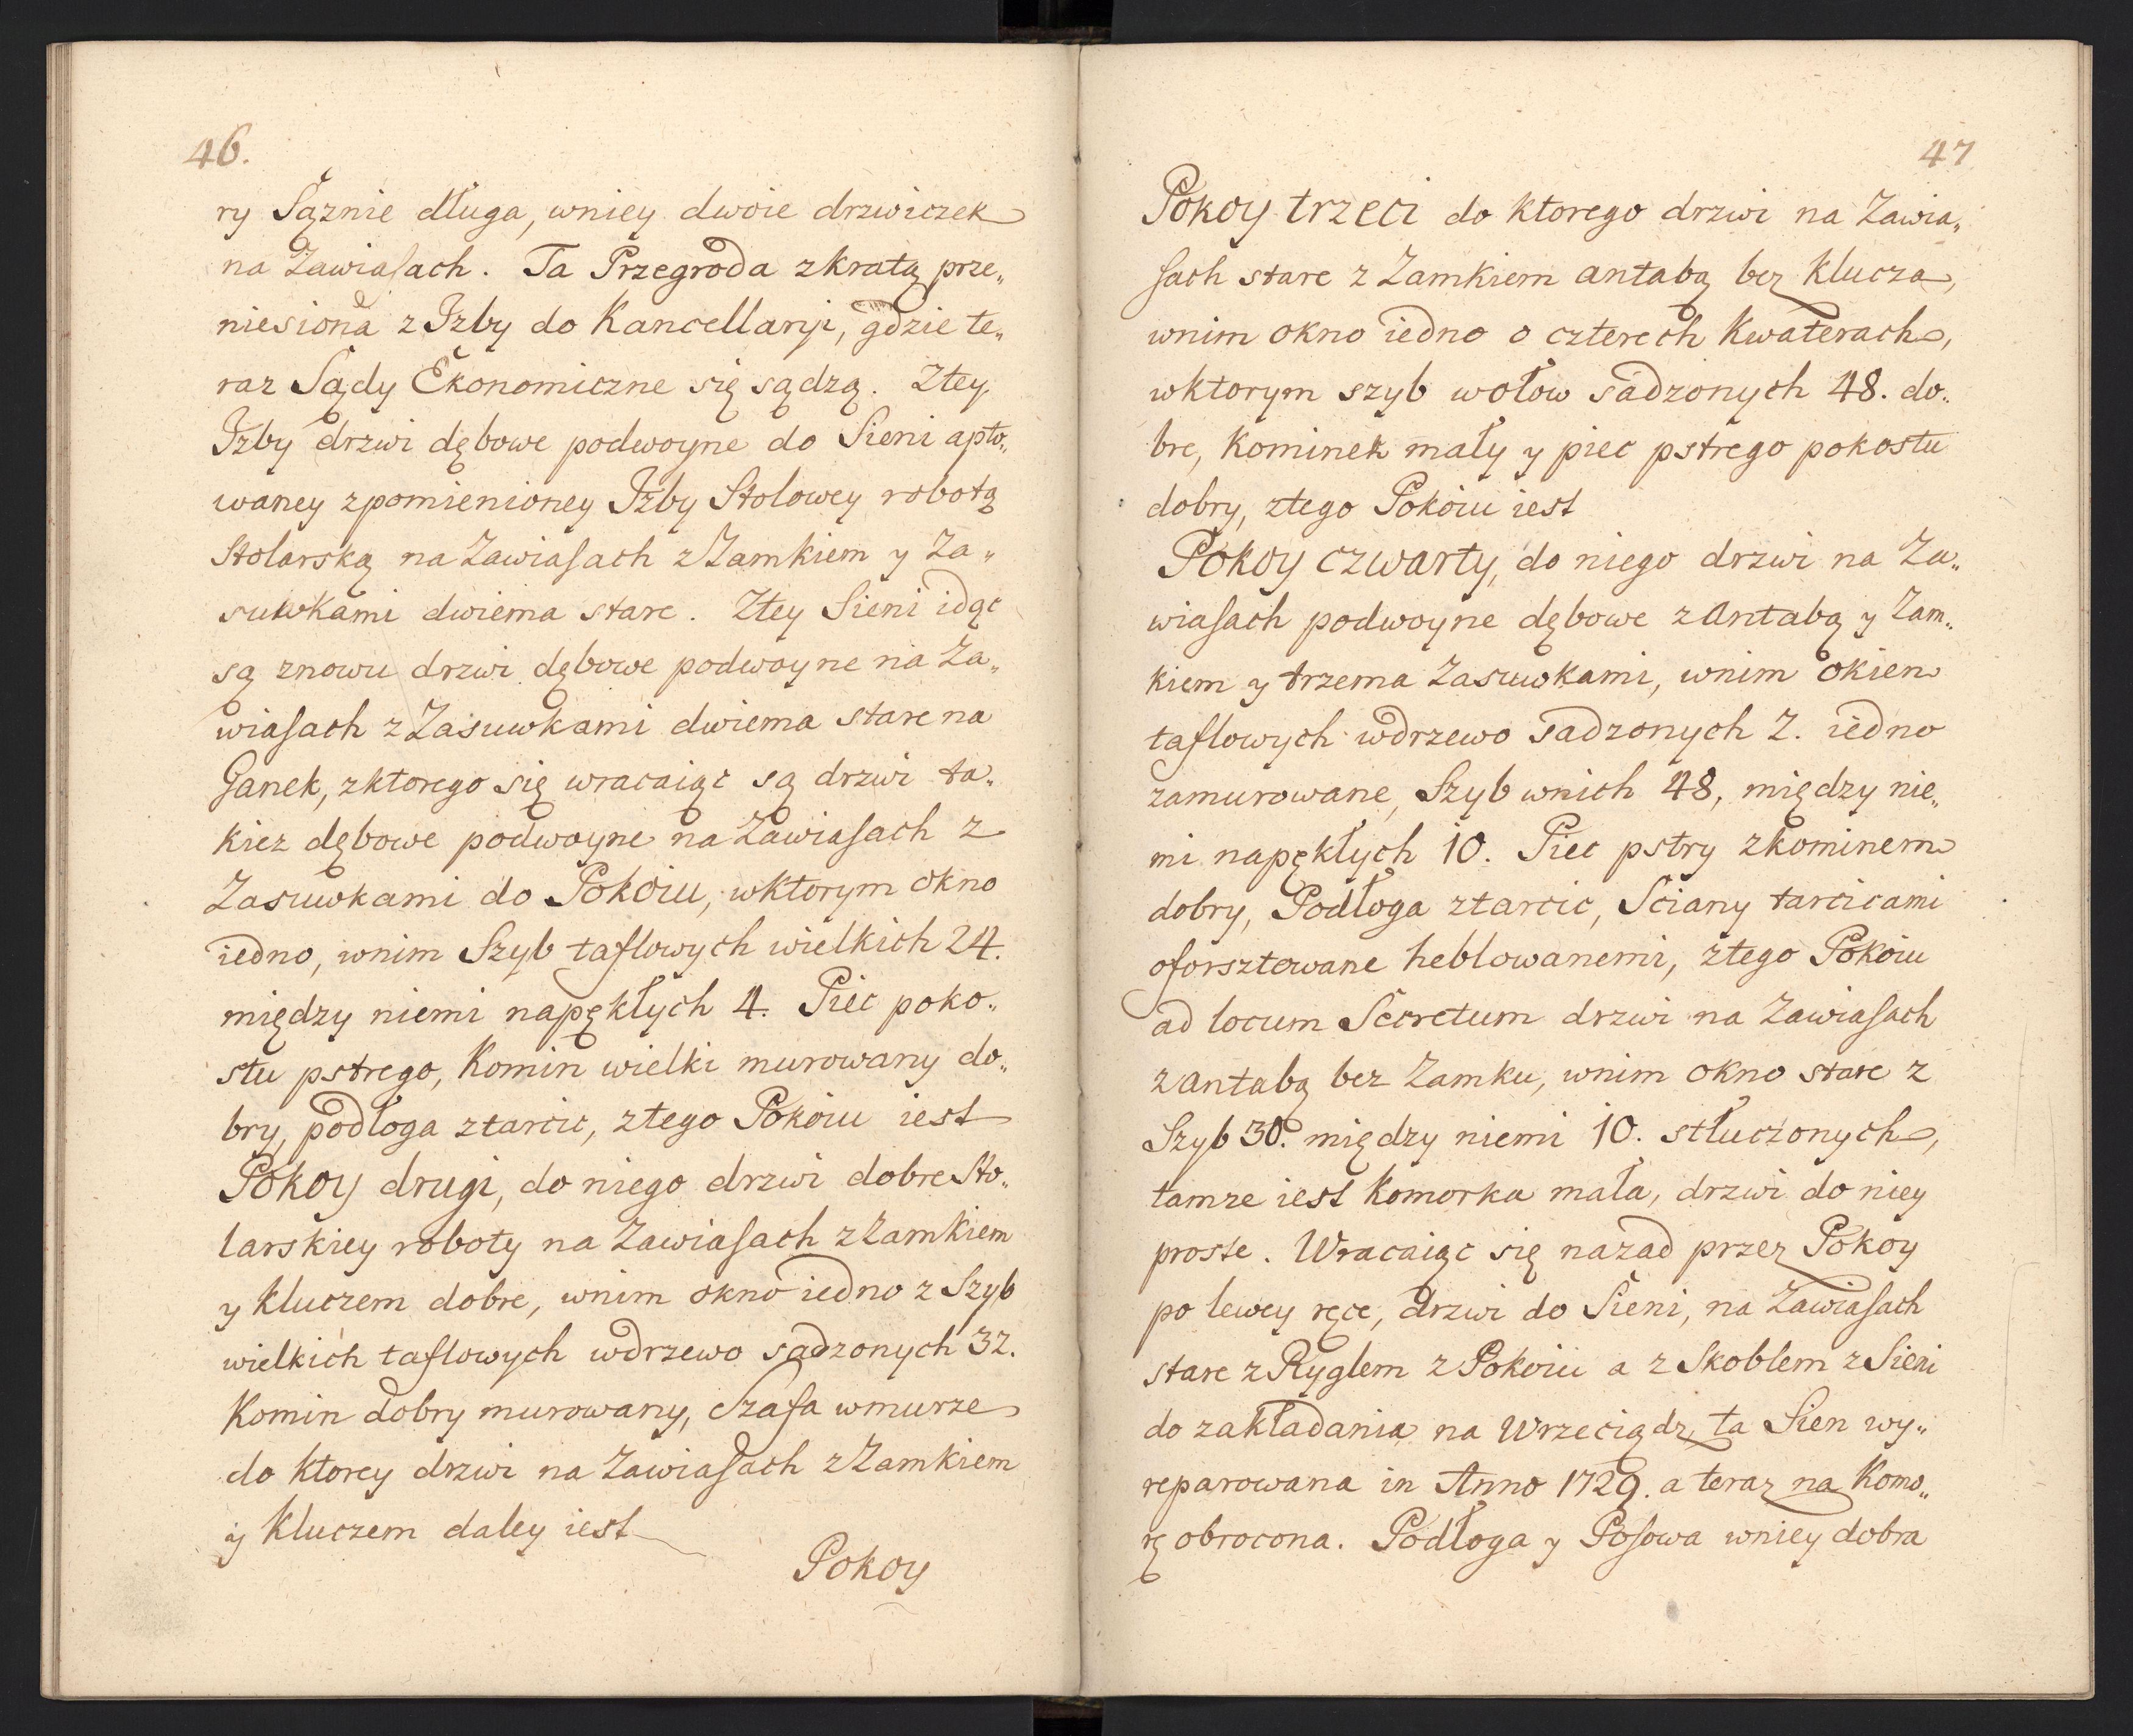 46.
ry Sążnie długa, wniey dwoie drzwiczek
na Zawiasach. Ta Przegroda zkratą prze„
niesiona z Izby do Kancellaryi, gdzie te„
raz Sądy Ekonomiczne się sądzą. Ztey
Izby drzwi dębowe podwoyne do Sieni apto„
waney zpomienioney Izby Stolowey robotą
Stolarską na Zawiasach z Zamkiem y Za„
suwkami dwiema stare. Ztey Sieni idąc
są znowu drzwi dębowe podwoyne na Za„
wiasach z Zasuwkami dwiema stare na
Ganek, zktorego się wracaiąc są drzwi ta„
kiez dębowe podwoyne na Zawiasach z
Zasuwkami do Pokoiu, wktorym okno
iedno, wnim Szyb taflowych wielkich 24.
między niemi napękłych 4. Piec poko„
stu pstrego, Komin wielki murowany do„
bry, podłoga ztarcic, ztego Pokoiu iest
Pokoy drugi, do niego drzwi dobre Sto„
larskiey roboty na Zawiasach z Zamkiem
y Kluczem dobre, wnim okno iedno z Szyb
wielkich taflowych wdrzewo sadzonych 32.
Komin dobry murowany, Szafa wmurze
do Ktorey drzwi na Zawiasach z Zamkiem
y Kluczem daley iest
Pokoy
47
Pokoy trzeci do Ktorego drzwi na Zawia„
sach stare z Zamkiem antabą bez Klucza,
wnim okno iedno o czterech Kwaterach,
wktorym szyb wołow sadzonych 48. do„
bre, Kominek mały y piec pstrego pokostu
dobry, ztego Pokoiu iest
Pokoy czwarty, do niego drzwi na Za„
wiasach podwoyne dębowe z Antabą y Zam„
kiem y trzema Zasuwkami, wnim okien
taflowych wdrzewo sadzonych 2. iedno
zamurowane, Szyb wnich 48, między nie„
mi napękłych 10. Piec pstry zkominem
dobry, Podłoga ztarcic, Sciany tarcicami
oforsztowane heblowanemi, ztego Pokoiu
ad locum Secretum drzwi na Zawiasach
z antabą bez Zamku, wnim okno stare z
Szyb 30. między niemi 10. stłuczonych,
tamze iest Komorka mała, drzwi do niey
proste. Wracaiąc się nazad przez Pokoy
po lewey ręce, drzwi do Sieni, na Zawiasach
stare z Ryglem z Pokoiu a z Skoblem z Sieni
do zakładania na Wrzeciądz, ta Sien wy„
reparowana in Anno 1729. a teraz na Komo„
rę obrocona. Podłoga y Posowa wniey dobra